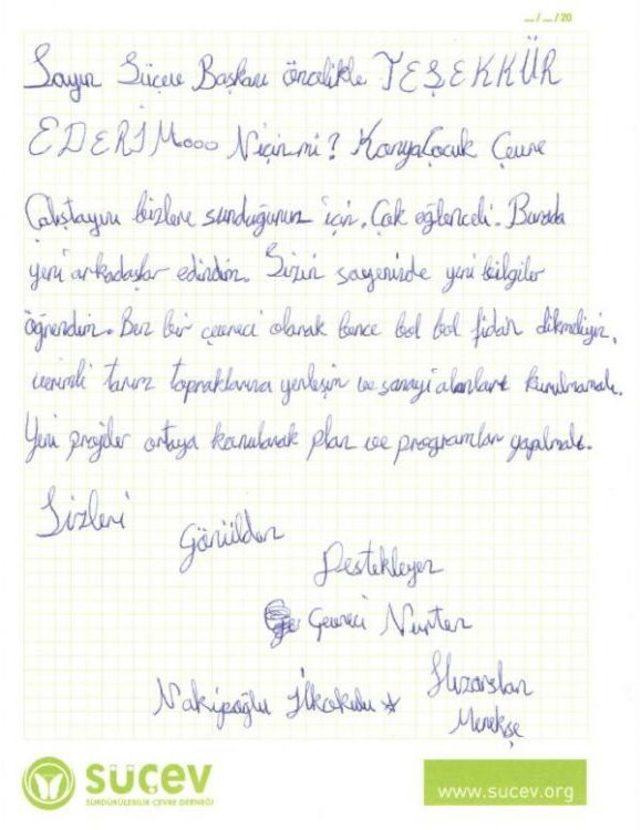 __/__/20
Sayın Süçev Başkanı öncelikle TEŞEKKÜR
EDERİMooo Niçin mi? Konya Çocuk Çevre
Çalıştayını bizlere sunduğunuz için. Çok eğlenceli. Burada
yeni arkadaşlar edindim. Sizin sayenizde yeni bilgiler
öğrendim. Ben bir çevreci olarak bence bol bol fidan dikmeliyiz,
verimli tarım topraklarına yerleşim ve sanayi alanları kurulmamalı.
Yeni projeler ortaya konularak plan ve programlar yapılmalı.
Sizleri
Gönülden
Destekleyen
Çevreci Nurten
Hızarslan
Nakipoğlu İlkokulu
Menekşe
süçev
SÜRDÜRÜLEBİLİR ÇEVRE DERNEĞİ
www.sucev.org